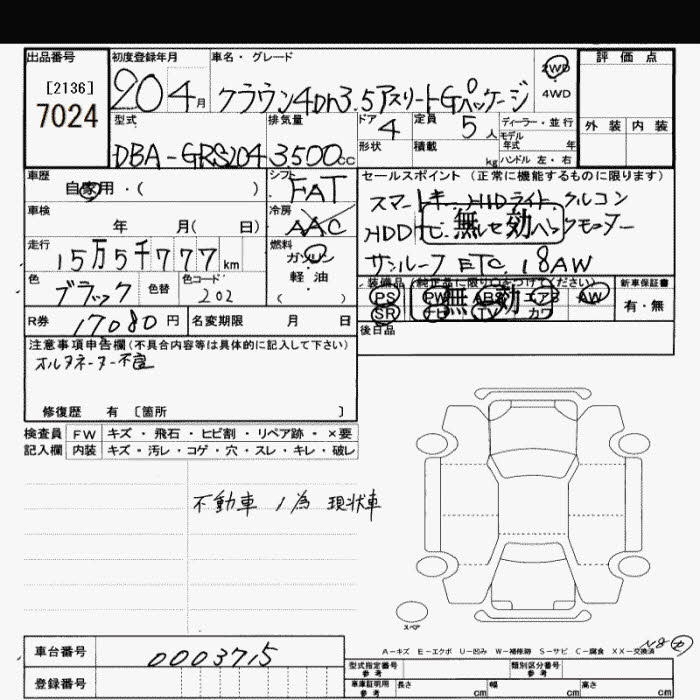 出品番号 初度登録年月 車名・グレード 評価点
[2136]
7024
20 4月 クラウン4Dh3.5アスリートGパッケージ 2WD
4WD
外装 内装
型式 排気量 ドア 4 定員 5人 ディーラー・並行
モデル年式 年
DBA-GRS204 3500cc 形状 積載 kg ハンドル 左・右
車歴 シフト セールスポイント (正常に機能するものに限ります)
自家用・( ) FAT
スマートキー HIDライト クルコン
車検 冷房
年 月( 日) AAC
HDDナビ 無効 バックモニター
走行 燃料
15万5千777km ガソリン
軽・油
( )
サンルーフ ETC 18AW
色 色替 色コード
ブラック 202
装備品 (純正品に限り○をつけてください) 新車保証書
PS PW ABS エアB AW 有・無
無効
SR TV カワ
R券 17080円 名変期限 月 日
後日品
注意事項申告欄(不具合内容等は具体的に記入して下さい)
オルタネーター不良
修復歴 有 [箇所 ]
検査員 FW キズ・飛石・ヒビ割・リペア跡・×要
記入欄 内装 キズ・汚レ・コゲ・穴・スレ・キレ・破レ
不動車ノ為 現状車
スペア
A-キズ E-エクボ U-凹み W-補修跡 S-サビ C-腐食 XX-交換済
車台番号 0003715
型式指定番号 参考 類別区分番号 参考
登録番号
車庫証明用 参考 長さ cm 幅 cm 高さ cm